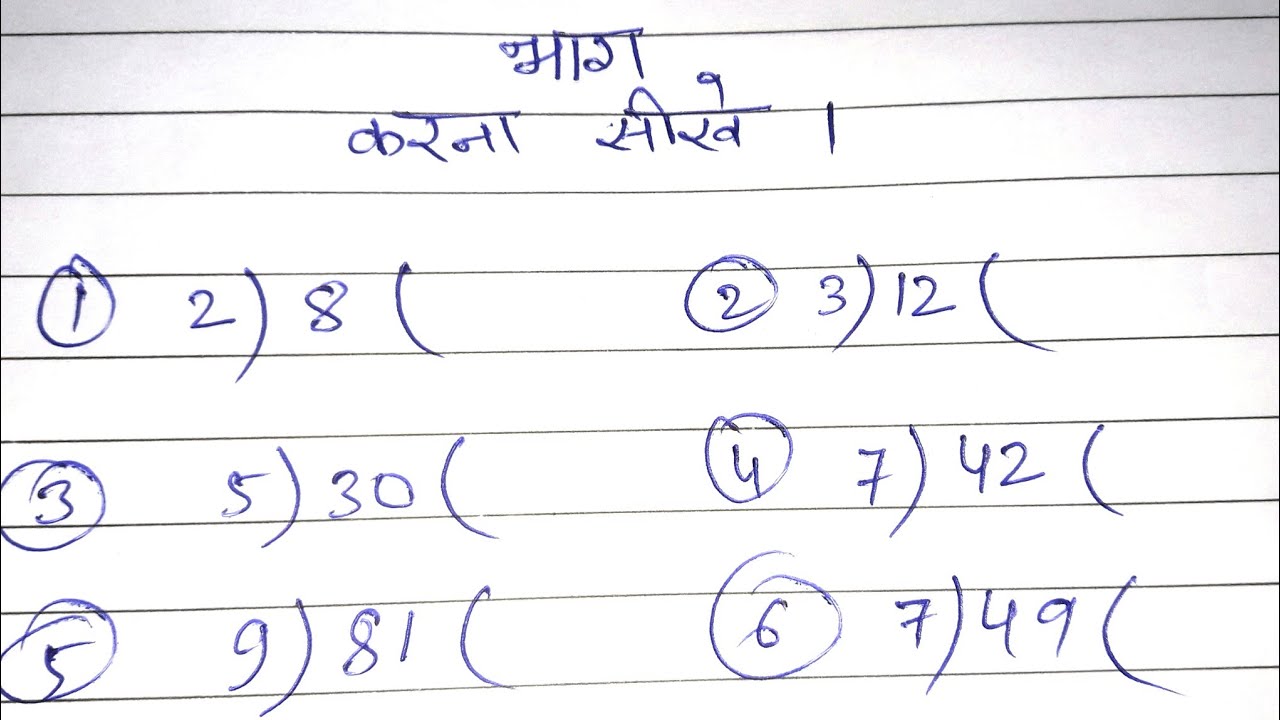 भाग
करना सीखे ।
① 2)8( ② 3)12(
③ 5)30( ④ 7)42(
⑤ 9)81( ⑥ 7)49(